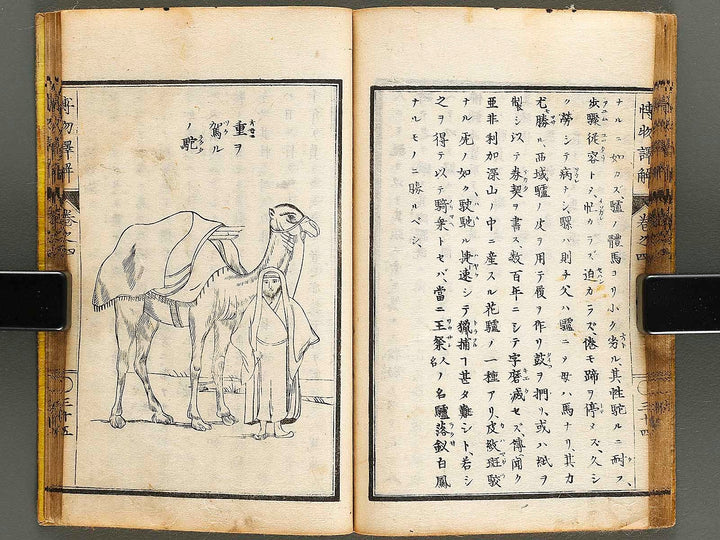 博物譯解
巻之四
三十四
ナルニ如カズ驢ノ體馬ヨリ小ク劣ル其性駝ルニ耐フ
歩驟從容トシテ忙カラズ迫カラズ倦モ蹄ヲ停メズ久シ
ク勞シテ病ナシ騾ハ則チ父ハ驢ニシテ母ハ馬ナリ其力
尤勝ル西域驢ノ皮ヲ用テ履ヲ作リ鼓ヲ捫リ或ハ紙ヲ
製シ以テ券契ヲ書ス数百年ニシテ字磨滅セズ傳聞ク
亜非利加深山ノ中ニ産スル花驢ノ一種アリ皮斑駮
ナル虎ノ如ク駛馳ル捷速シテ獵捕コ甚タ難シト若シ
之ヲ得テ以テ騎乗トセバ當ニ王祭ノ名驢落釵白鳳
ナルモノニ勝ルベシ
重ヲ
駕ル
ノ駝
博物譯解
巻之四
三十五